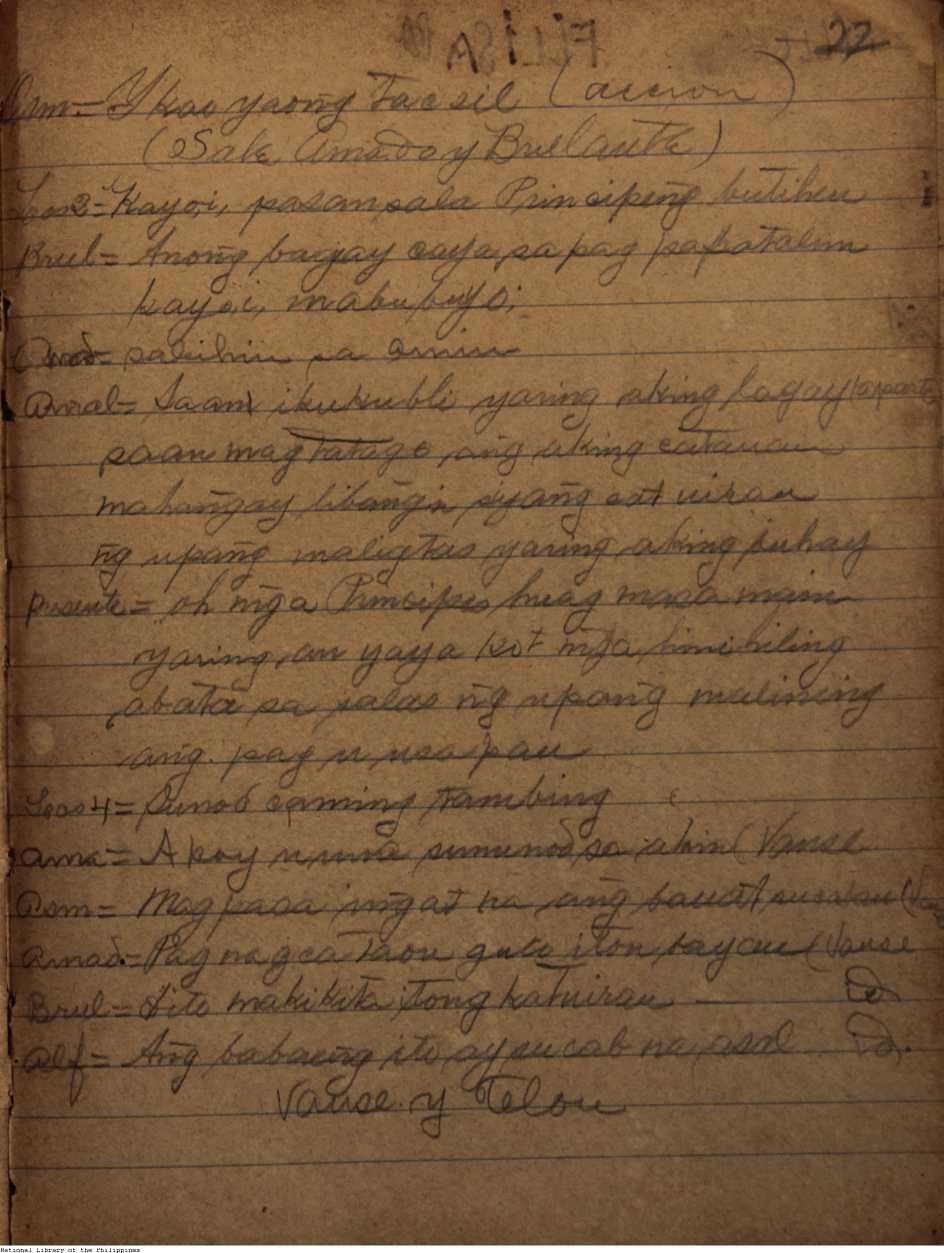 22
Osm= Ykao yaong Tacsil (accion)
(Sale Amado y Brulante)
Los 2= Kayo,i, pasan,sala Principeng butihen
Brul= Anong bagay caya sa pag
kayo,i, mabubuyo,
Amad= sabihin sa amin
Amal= Saan ikukubli yaring aking lagay (aparte
saan magtatago ang aking catauan
mahangay libangin
ng upang maligtas yaring aking buhay
presente= oh mga Principes huag masamain
yaring an yaya ko't mga hinihiling
sa salas ng upang malining
ang pag u usapan
Los 4= Sunod caming tambing
Ama= Akoy uuna sumunod sa akin (Vanse
Osm= Magpasa ingat na ang bauat
Amad= Pag nagca taon guto iton bayan (Vanse
Brul= dito makikita itong katuiran — Id
Alf= Ang babaeng ito ay sucab na asal Id.
Vanse y Telon
National Library of the Philippines